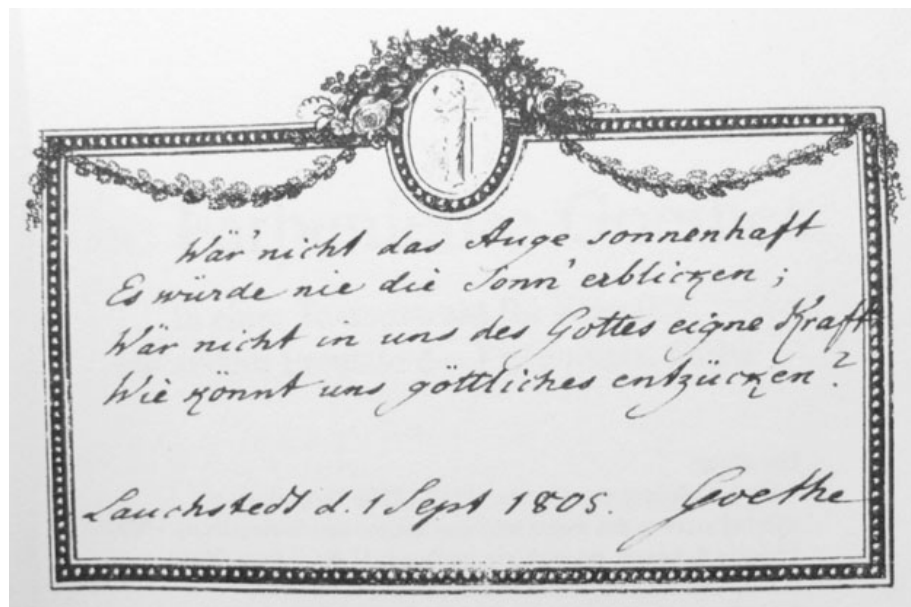 Wär' nicht das Auge sonnenhaft
Es würde nie die Sonn' erblicken;
Wär nicht in uns des Gottes eigne Kraft
Wie könnt uns göttliches entzücken?
Lauchstedt d. 1 Sept 1805. Goethe